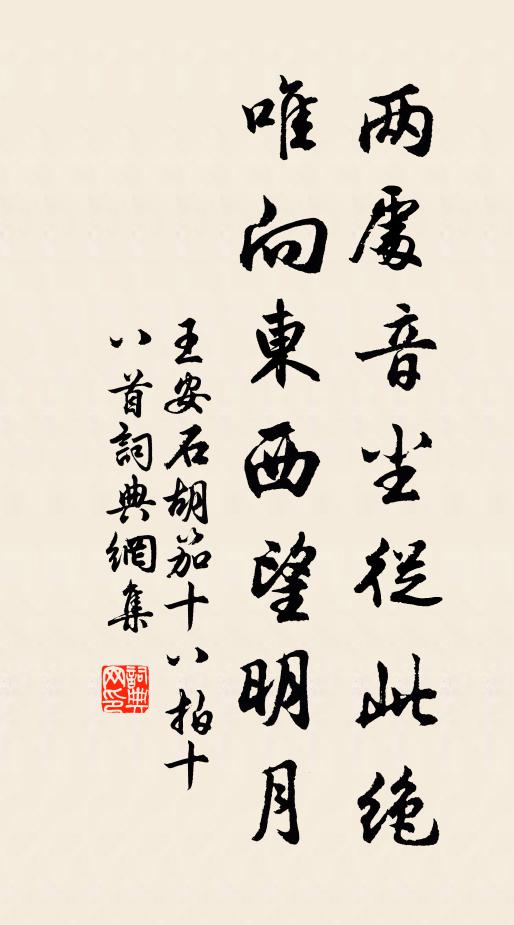 两處音尘從此绝
唯向東西望明月
王安石胡笳十八拍十
八首詞典網集
詞典
网印